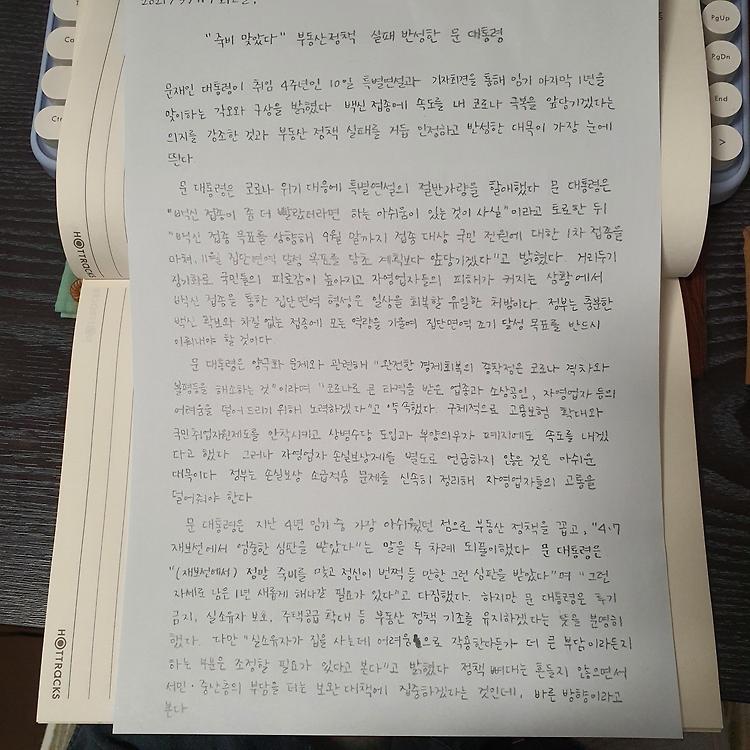 "죽비 맞았다" 부동산정책 실패 반성한 문 대통령
문재인 대통령이 취임 4주년인 10일 특별연설과 기자회견을 통해 임기 마지막 1년을
맞이하는 각오와 구상을 밝혔다. 백신 접종에 속도를 내 코로나 극복을 앞당기겠다는
의지를 강조한 것과 부동산 정책 실패를 거듭 인정하고 반성한 대목이 가장 눈에
띈다.
문 대통령은 코로나 위기 대응에 특별연설의 절반가량을 할애했다 문 대통령은
"백신 접종이 좀 더 빨랐더라면 하는 아쉬움이 있는 것이 사실"이라고 토로한 뒤
"백신 접종 목표를 상향해 9월 말까지 접종 대상 국민 전원에 대한 1차 접종을
마쳐, 11월 집단면역 달성 목표를 당초 계획보다 앞당기겠다"고 밝혔다. 거리두기
장기화로 국민들의 피로감이 높아지고 자영업자들의 피해가 커지는 상황에서
백신 접종을 통한 집단면역 형성은 일상을 회복할 유일한 처방이다. 정부는 충분한
백신 확보와 차질 없는 접종에 모든 역량을 기울여 집단면역 조기 달성 목표를 반드시
이뤄내야 할 것이다.
문 대통령은 양극화 문제와 관련해 "완전한 경제회복의 종착점은 코로나 격차와
불평등을 해소하는 것"이라며 "코로나로 큰 타격을 받은 업종과 소상공인, 자영업자 등의
어려움을 덜어 드리기 위해 노력하겠다"고 약속했다. 구체적으로 고용보험 확대와
국민취업지원제도를 안착시키고 상병수당 도입과 부양의무자 폐지에도 속도를 내겠
다고 했다. 그러나 자영업자 손실보상제를 별도로 언급하지 않은 것은 아쉬운
대목이다 정부는 손실보상 소급적용 문제를 신속히 정리해 자영업자들의 고통을
덜어줘야 한다
문 대통령은 지난 4년 임기 중 가장 아쉬웠던 점으로 부동산 정책을 꼽고, "4·7
재보선에서 엄중한 심판을 받았다"는 말을 두 차례 되풀이했다 문 대통령은
"(재보선에서) 정말 죽비를 맞고 정신이 번쩍 들 만한 그런 심판을 받았다"며 "그런
자세로 남은 1년 새롭게 해나갈 필요가 있다"고 다짐했다. 하지만 문 대통령은 투기
금지, 실소유자 보호, 주택공급 확대 등 부동산 정책 기조를 유지하겠다는 뜻을 분명히
했다. 다만 "실소유자가 집을 사는데 어려움으로 작용한다든가 더 큰 부담이라든지
하는 부분은 조정할 필요가 있다고 본다"고 밝혔다 정책 뼈대는 흔들지 않으면서
서민·중산층의 부담을 더는 보완 대책에 집중하겠다는 것인데, 바른 방향이라고
본다
HOTTRACKS
HOTTRACKS
PgUp
PgDn
End